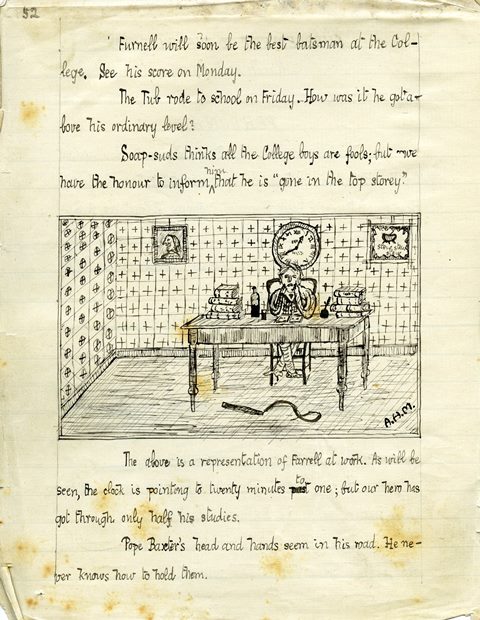 52
' Furnell will soon be the best batsman at the Col-
lege. See his score on Monday.
The Tub rode to school on Friday. How was it he got a-
bove his ordinary level?
Soap-suds thinks all the College boys are fools; but we
have the honour to inform him that he is "gone in the top storey."
A.H.M.
The above is a representation of Farrell at work. As will be
seen, the clock is pointing to twenty minutes past to one; but our hero has
got through only half his studies.
Pope Baxter's head and hands seem in his road. He ne-
ver knows how to hold them.